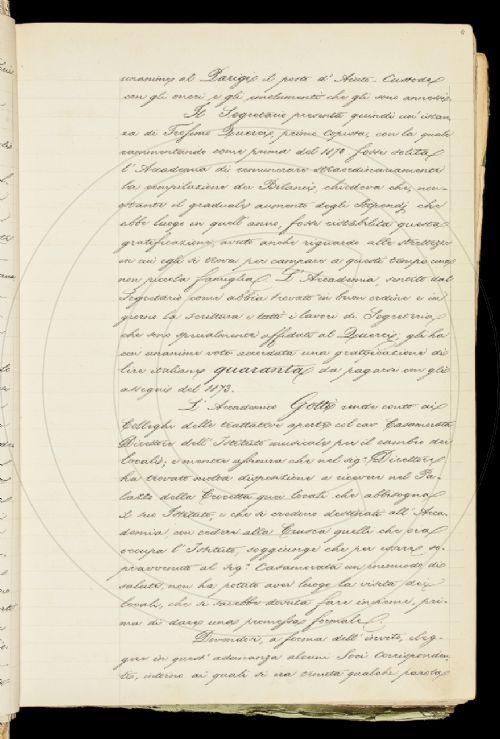 unanime al Parigi il posto d'Aiuto-Custode
con gli oneri e gli emolumenti che gli sono annessi.
Il Segretario presenta quindi un'istan-
za di Trofimo Querci, primo copista, con la quale
rammentando come prima del 1870 fosse solita
l'Accademia di remunerare straordinariamente
la compilazione dei Bilanci, chiedeva che, non-
ostante il graduale aumento degli stipendj che
ebbe luogo in quell'anno, fosse ristabilita questa
gratificazione, avuto anche riguardo alle strettezze
in cui egli si trova per campare a questi tempi una
non piccola famiglia. L'Accademia, sentito dal
Segretario come abbia trovato in buon ordine e in
giorno la scrittura e tutti i lavori di Segreteria
che sono specialmente affidati al Querci, gli ha
con unanime voto accordata una gratificazione di
lire italiane quaranta da pagarsi con gli
assegni del 1873.
L'Accademico Gotti rende conto ai
Colleghi delle trattative aperte col cav. Casamorata
Direttore dell'Istituto musicale per il cambio dei
locali; e mentre afferma che nel sig. Direttore
ha trovato molta disposizione a ricevere nel Pa-
lazzo della Crocetta quei locali che abbisogna
il suo Istituto, e che si credono destinati all'Acca-
demia, con cedere alla Crusca quelli che ora
occupa l'Istituto, soggiunge che per essere so-
pravvenuto al sig. Casamorata un incomodo di
salute, non ha potuto aver luogo la visita dei
locali, che si sarebbe dovuta fare insieme, pri-
ma di dare una promessa formale.
Dovendosi, a forma dell'invito, eleg-
gere in quest'adunanza alcuni Soci corrisponden-
ti, intorno ai quali si era tenuta qualche parola